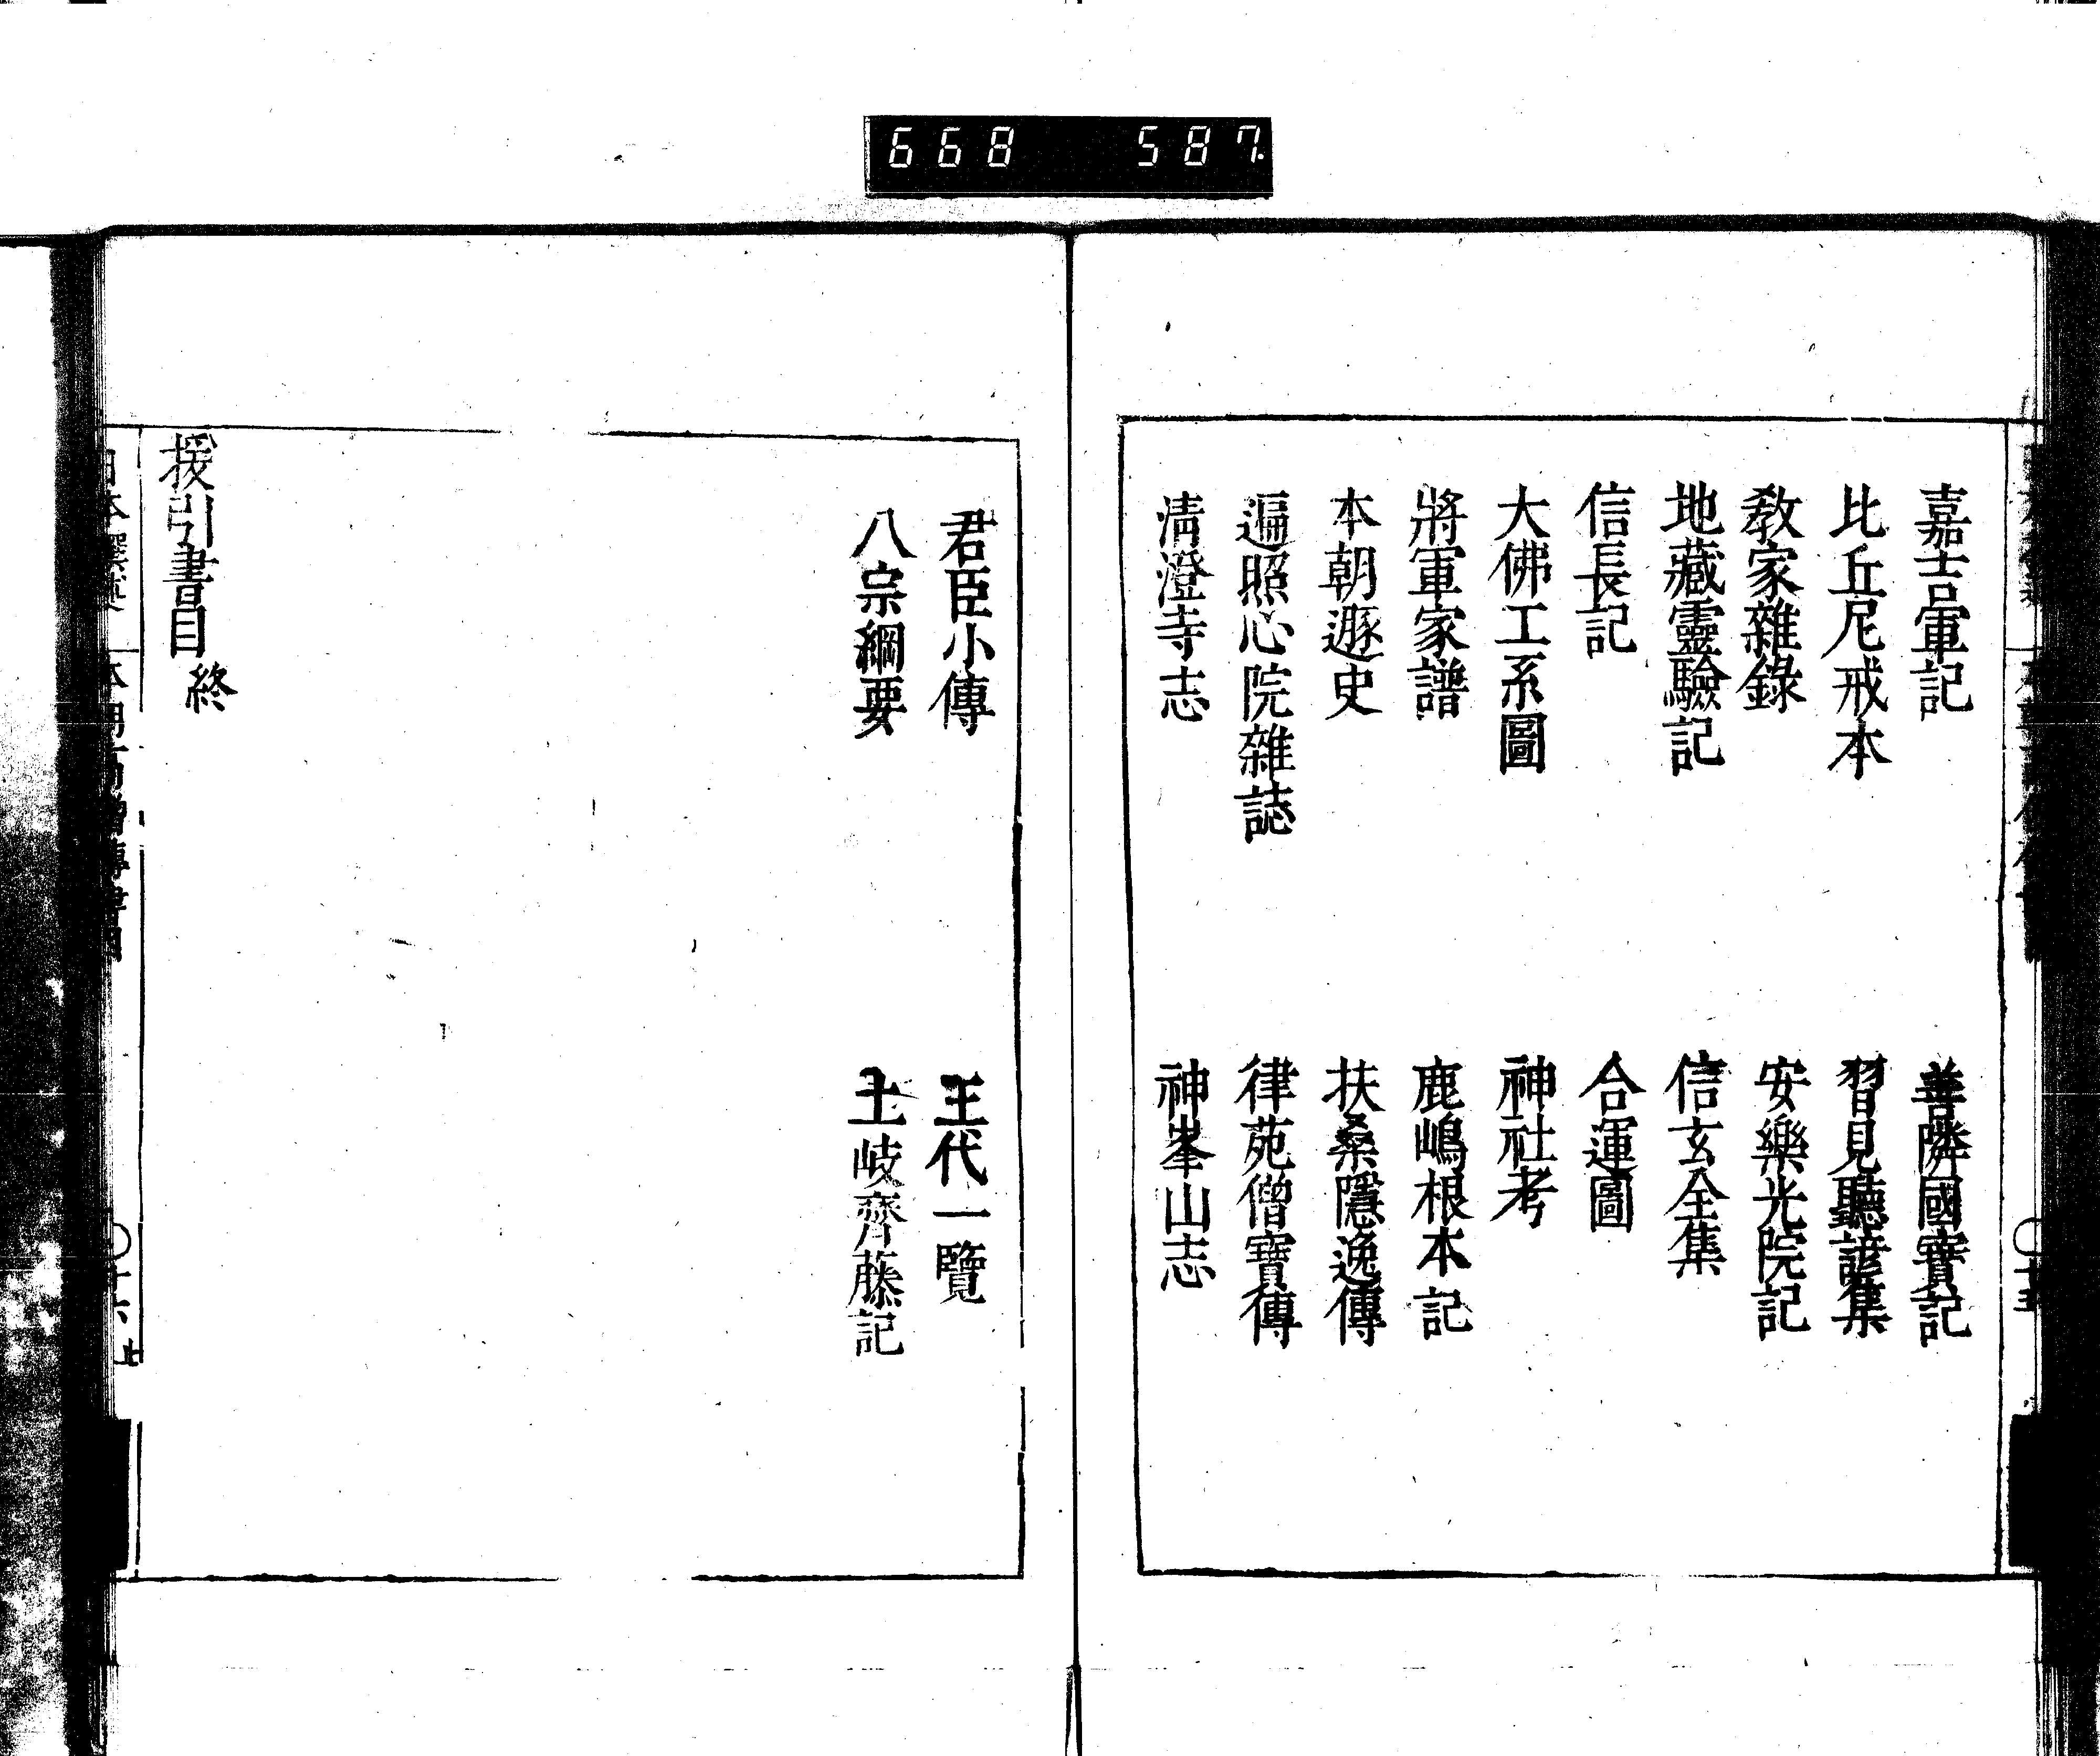 668 587.
嘉吉軍記 善隣國寶記
比丘尼戒本 習見聽諺集
教家雜錄 安樂光院記
地藏靈驗記 信玄全集
信長記 合運圖
大佛工系圖 神社考
將軍家譜 鹿嶋根本記
本朝遯史 扶桑隱逸傳
遍照心院雜誌 律苑僧寶傳
清澄寺志 神峯山志
君臣小傳 王代一覽
八宗綱要 土岐齊藤記
援引書目終